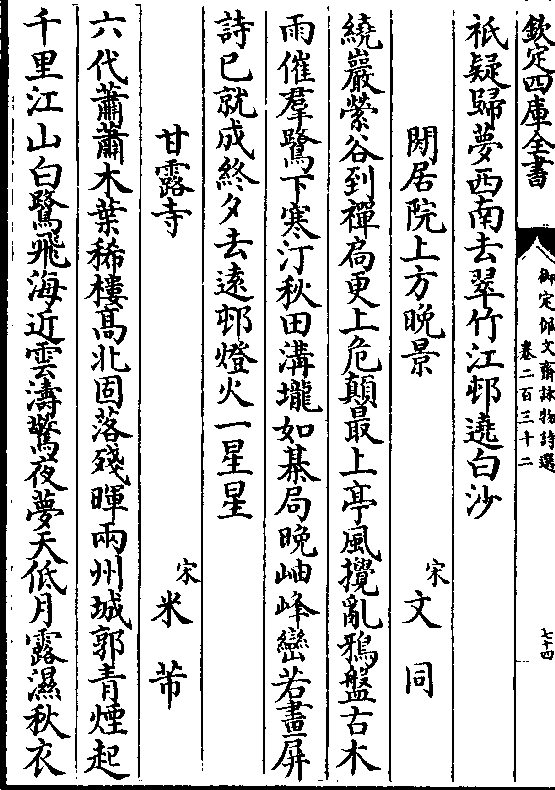 欽定四庫全書
御定佩文齋詠物詩選
卷二百三十二
七十四
祇疑歸夢西南去翠竹江邨遶白沙
閑居院上方晚景
宋文同
繞巖縈谷到禪扃更上危顛最上亭風攪亂鴉盤古木
雨催羣鷺下寒汀秋田溝壠如棊局晚岫峰巒若畫屏
詩已就成終夕去遠邨燈火一星星
甘露寺
宋米芾
六代蕭蕭木葉稀樓髙北固落殘暉兩州城郭青煙起
千里江山白鷺飛海近雲濤驚夜夢天低月露濕秋衣